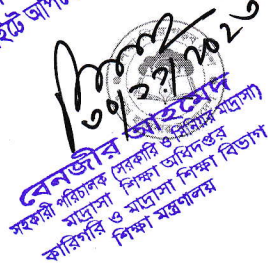 ৩০/১১/২০২৩
বেনজীর আহমেদ
সহকারী পরিচালক (সরকারি ও সিনিয়র মাদ্রাসা)
মাদ্রাসা শিক্ষা অধিদপ্তর
কারিগরি ও মাদ্রাসা শিক্ষা বিভাগ
শিক্ষা মন্ত্রণালয়